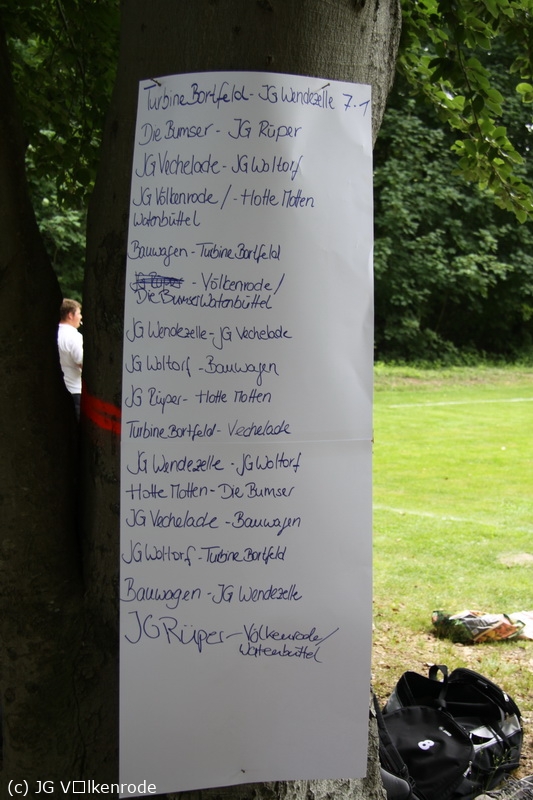 Turbine Bortfeld - JG Wendezelle 7:1
Die Bumser - JG Rüper
JG Vechelade - JG Woltorf
JG Völkenrode / - Hotte Motten
Watenbüttel
Bauwagen - Turbine Bortfeld
JG Rüper - Völkenrode/
Die Bumser Watenbüttel
JG Wendezelle - JG Vechelade
JG Woltorf - Bauwagen
JG Rüper - Hotte Motten
Turbine Bortfeld - Vechelade
JG Wendezelle - JG Woltorf
Hotte Motten - Die Bumser
JG Vechelade - Bauwagen
JG Woltorf - Turbine Bortfeld
Bauwagen - JG Wendezelle
JG Rüper - Völkenrode/
Watenbüttel
8
(c) JG V□lkenrode